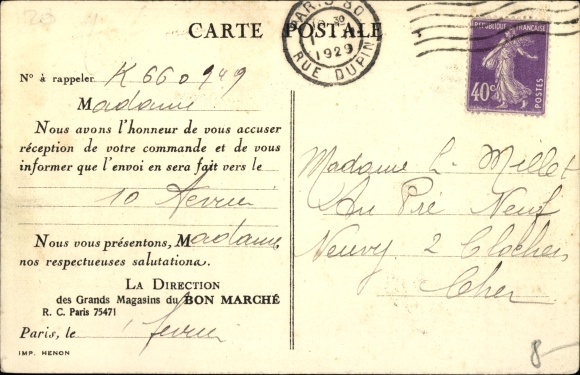 CARTE POSTALE
PARIS 80
1929
RUE DUPIN
RÉPUBLIQUE FRANÇAISE
40c
POSTES
N° à rappeler K 660949
Madame
Nous avons l'honneur de vous accuser
réception de votre commande et de vous
informer que l'envoi en sera fait vers le
10 Fevrier
Nous vous présentons, Madame,
nos respectueuses salutations.
LA DIRECTION
des Grands Magasins du BON MARCHÉ
R. C. Paris 75471
Paris, le 1 fevrier
IMP. HENON
Madame L. Millet
Au Pré Neuf
Neuvy 2 Clochers
Cher
8